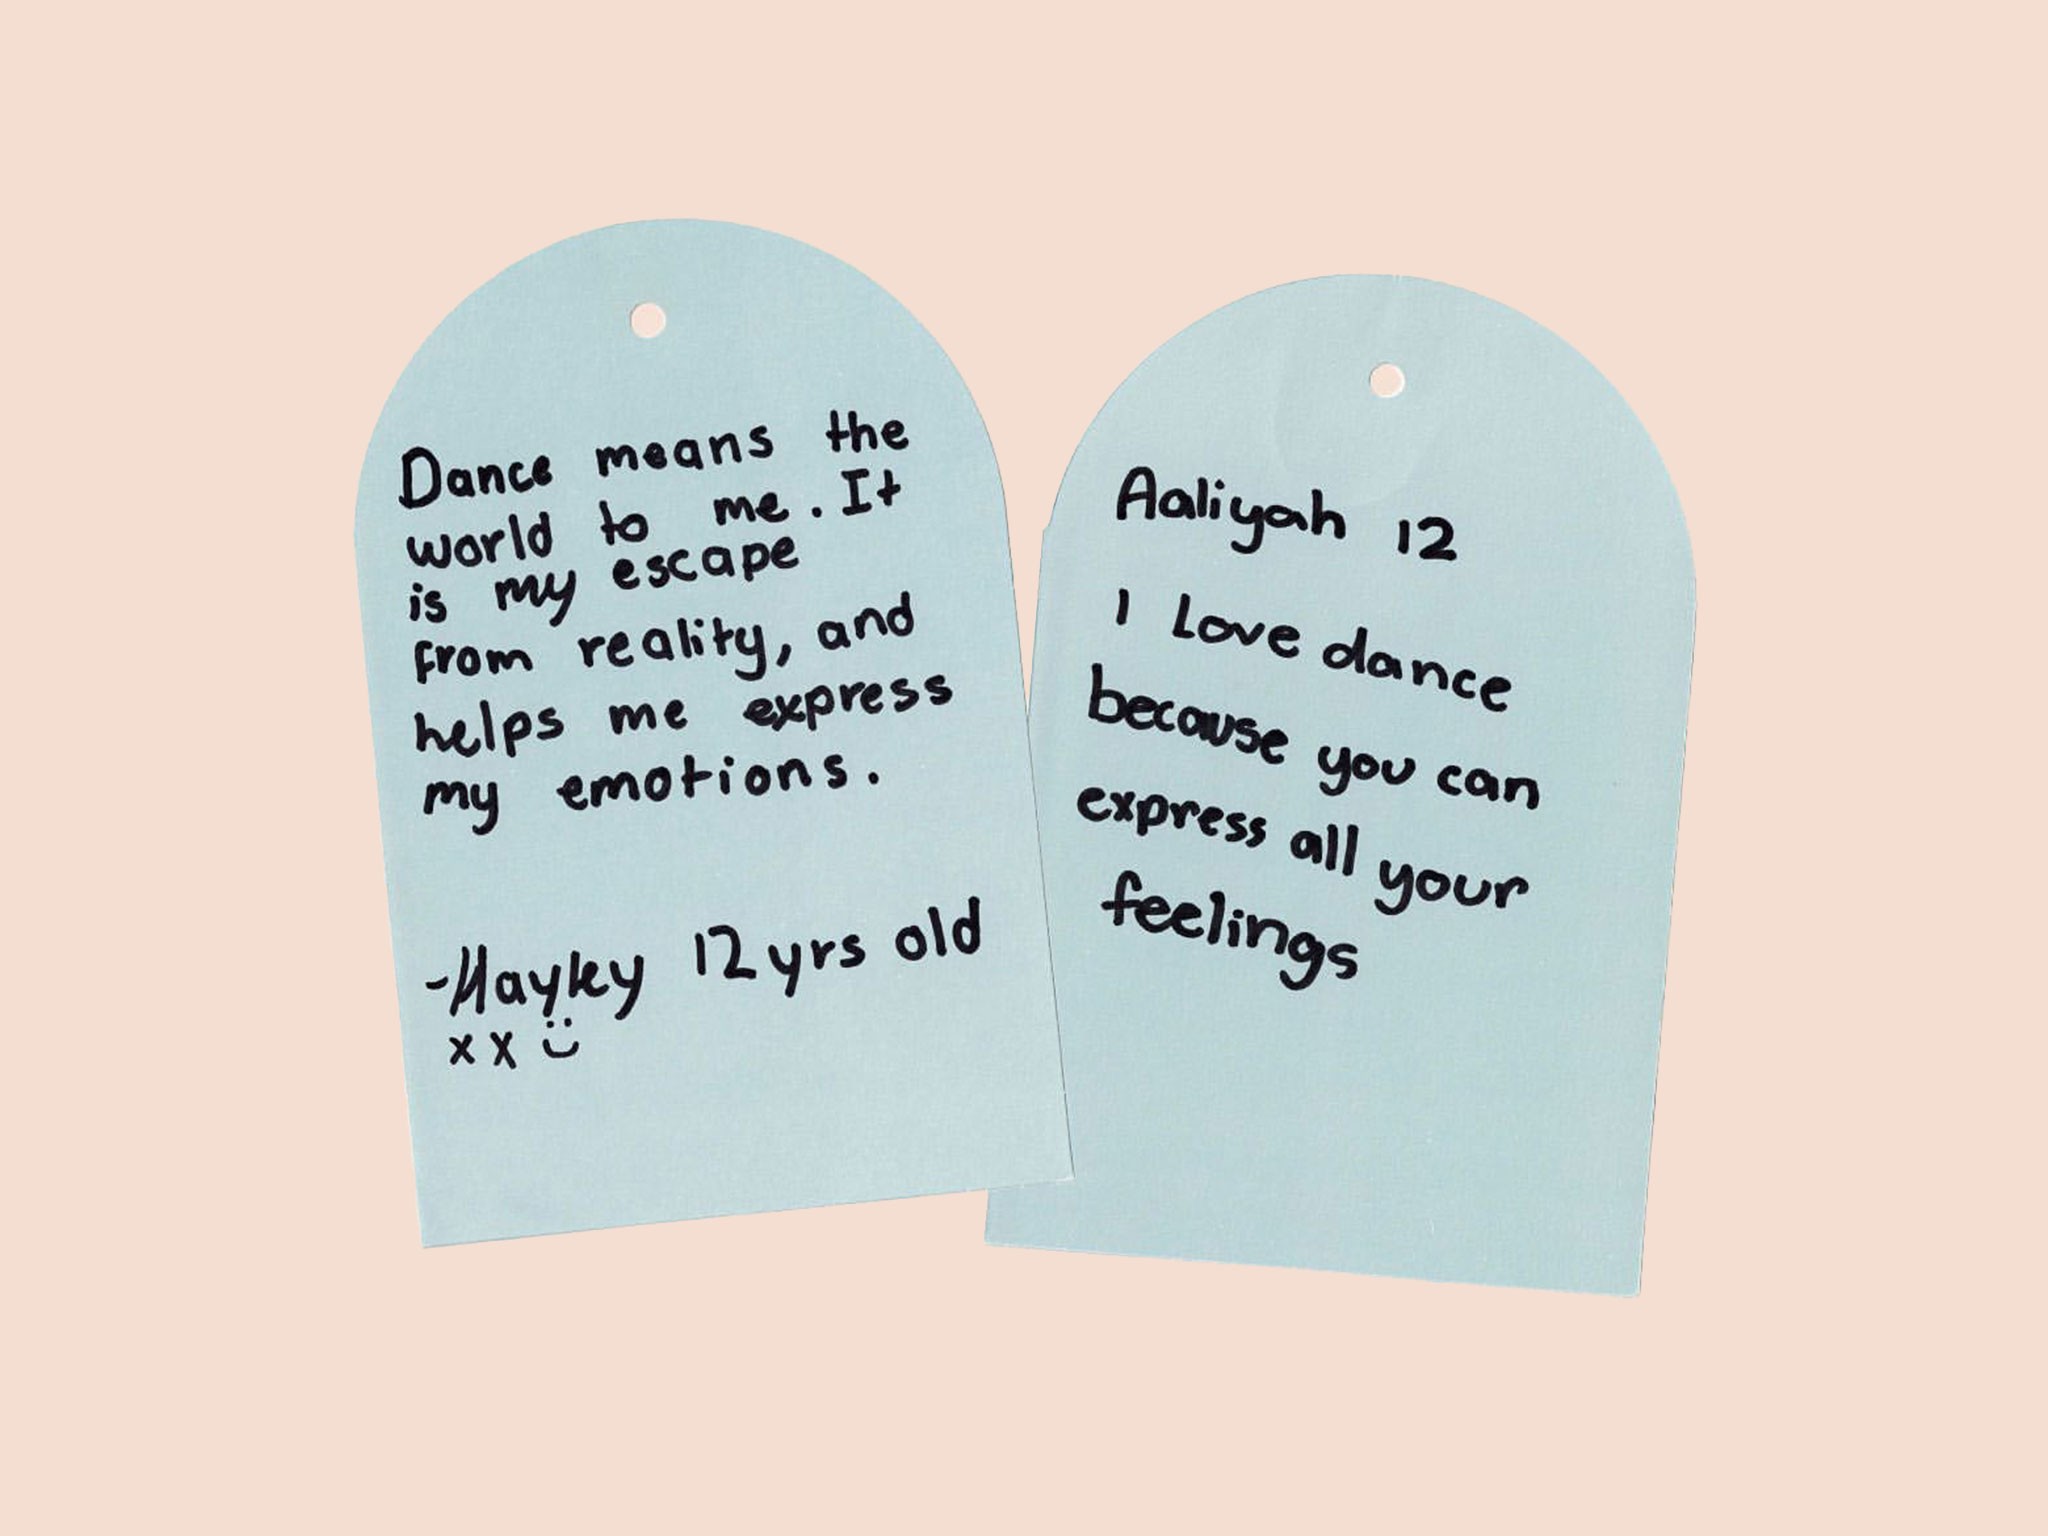 Dance means the
world to me. It
is my escape
from reality, and
helps me express
my emotions.
-Hayley 12 yrs old
x x :)
Aaliyah 12
I Love dance
because you can
express all your
feelings